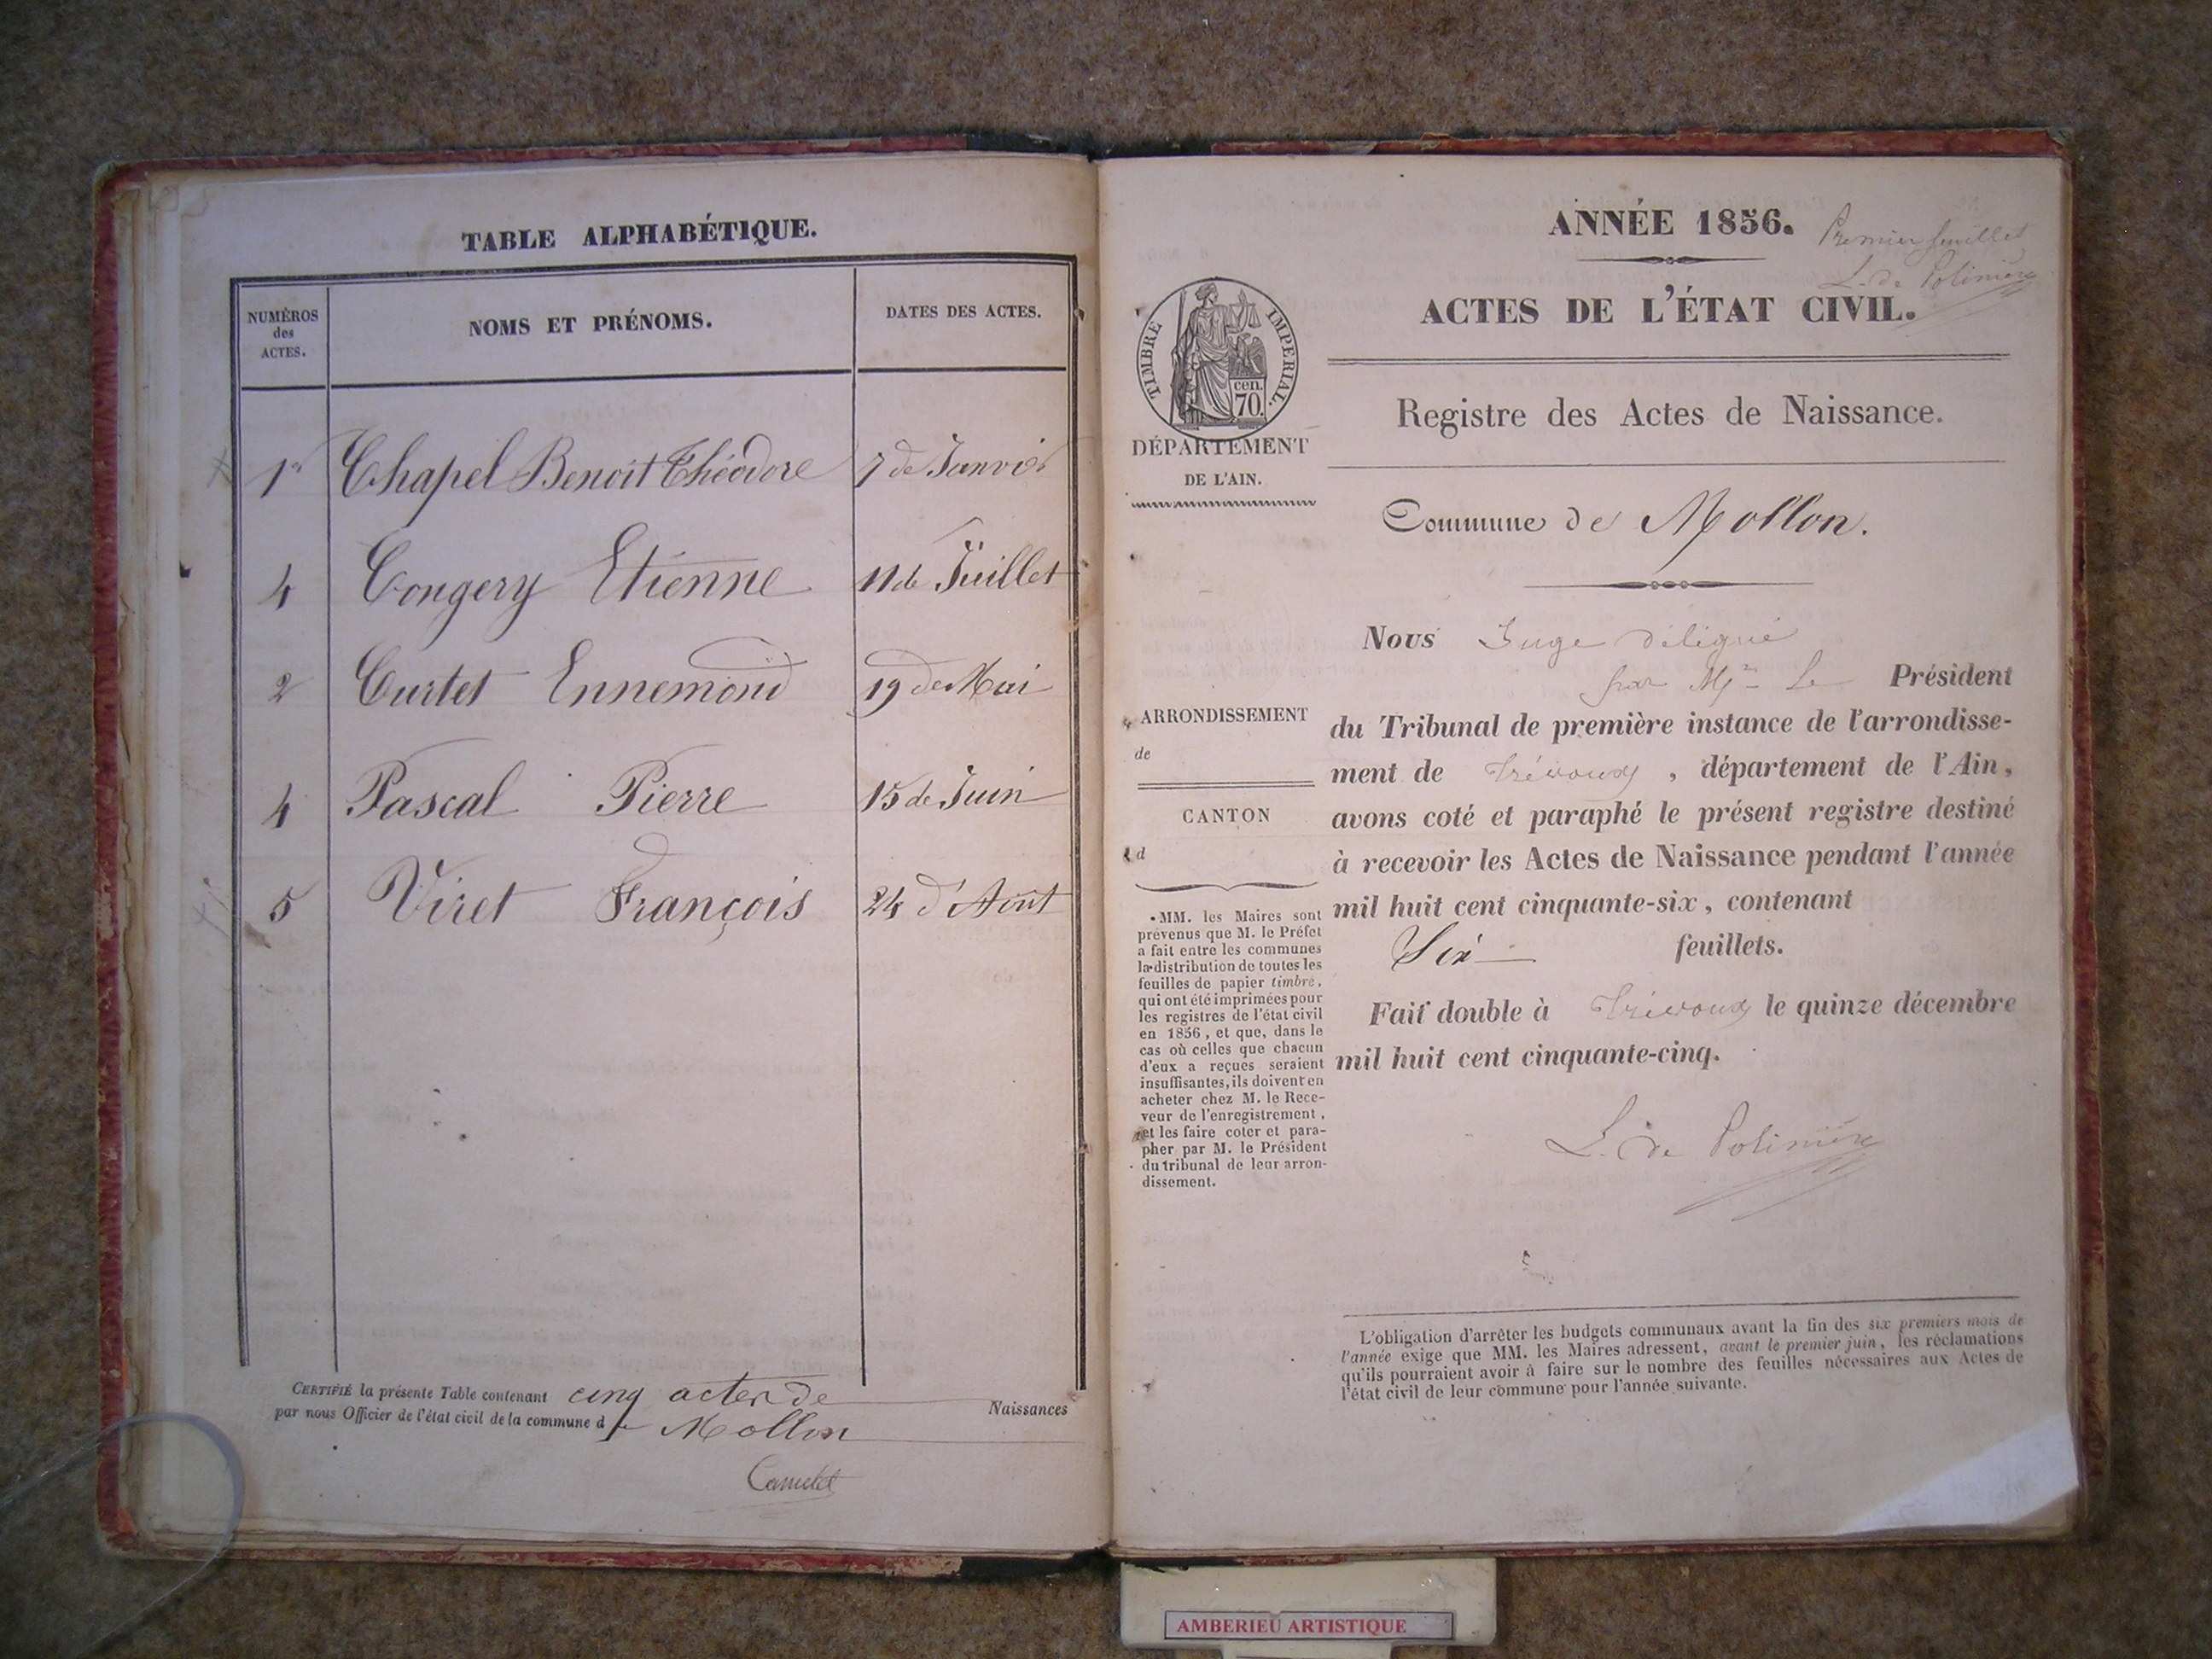 TABLE ALPHABÉTIQUE.
NUMÉROS
des
ACTES.
NOMS ET PRÉNOMS.
DATES DES ACTES.
1er Chapel Benoit Théodore 7 de Janvier
4 Congery Etienne 11 de Juillet
2 Curtet Ennemond 19 de Mai
4 Pascal Pierre 15 de Juin
5 Viret François 24 d'Août
CERTIFIÉ la présente Table contenant cinq actes de Naissances
par nous Officier de l'état civil de la commune de Mollon
ANNÉE 1856.
Premier feuillet
L. de Polinière
ACTES DE L'ÉTAT CIVIL.
Registre des Actes de Naissance.
Commune de Mollon.
TIMBRE IMPERIAL.
cen.
70.
DÉPARTEMENT
DE L'AIN.
ARRONDISSEMENT
de
CANTON
d
MM. les Maires sont
prévenus que M. le Préfet
a fait entre les communes
la distribution de toutes les
feuilles de papier timbré,
qui ont été imprimées pour
les registres de l'état civil
en 1856, et que, dans le
cas où celles que chacun
d'eux a reçues seraient
insuffisantes, ils doivent en
acheter chez M. le Rece-
veur de l'enregistrement,
et les faire coter et para-
pher par M. le Président
du tribunal de leur arron-
dissement.
Nous Juge délégué
par Mr Le Président
du Tribunal de première instance de l'arrondisse-
ment de Trévoux, département de l'Ain,
avons coté et paraphé le présent registre destiné
à recevoir les Actes de Naissance pendant l'année
mil huit cent cinquante-six, contenant
Six feuillets.
Fait double à Trévoux le quinze décembre
mil huit cent cinquante-cinq.
L. de Polinière
L'obligation d'arrêter les budgets communaux avant la fin des six premiers mois de
l'année exige que MM. les Maires adressent, avant le premier juin, les réclamations
qu'ils pourraient avoir à faire sur le nombre des feuilles nécessaires aux Actes de
l'état civil de leur commune pour l'année suivante.
AMBERIEU ARTISTIQUE